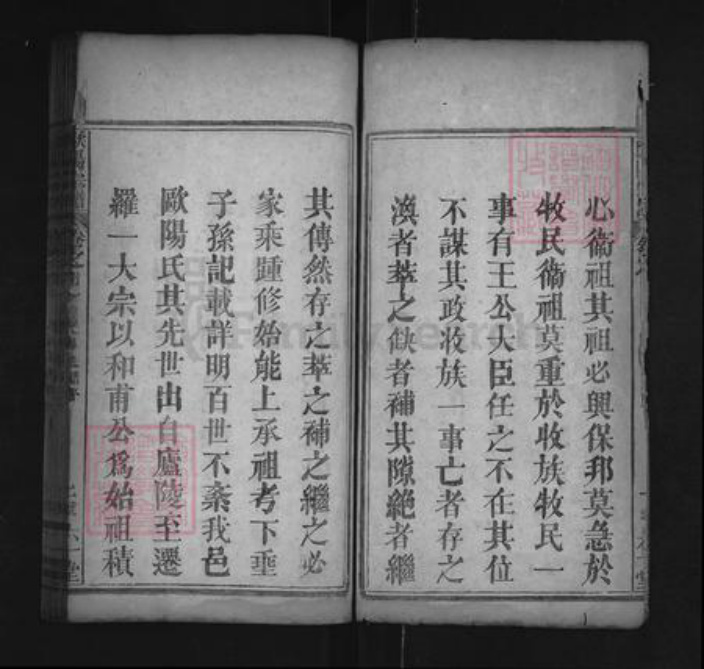 心衞祖其祖必興保邦莫急於
牧民衞祖莫重於收族牧民一
事有王公大臣任之不在其位
不謀其政收族一事亡者存之
渙者萃之缺者補其隙絕者繼
其傳然存之萃之補之繼之必
家乘踵修始能上承祖考下垂
子孫記載詳明百世不紊我邑
歐陽氏其先世出自廬陵至遷
羅一大宗以和甫公爲始祖積
六一堂
FamilySearch